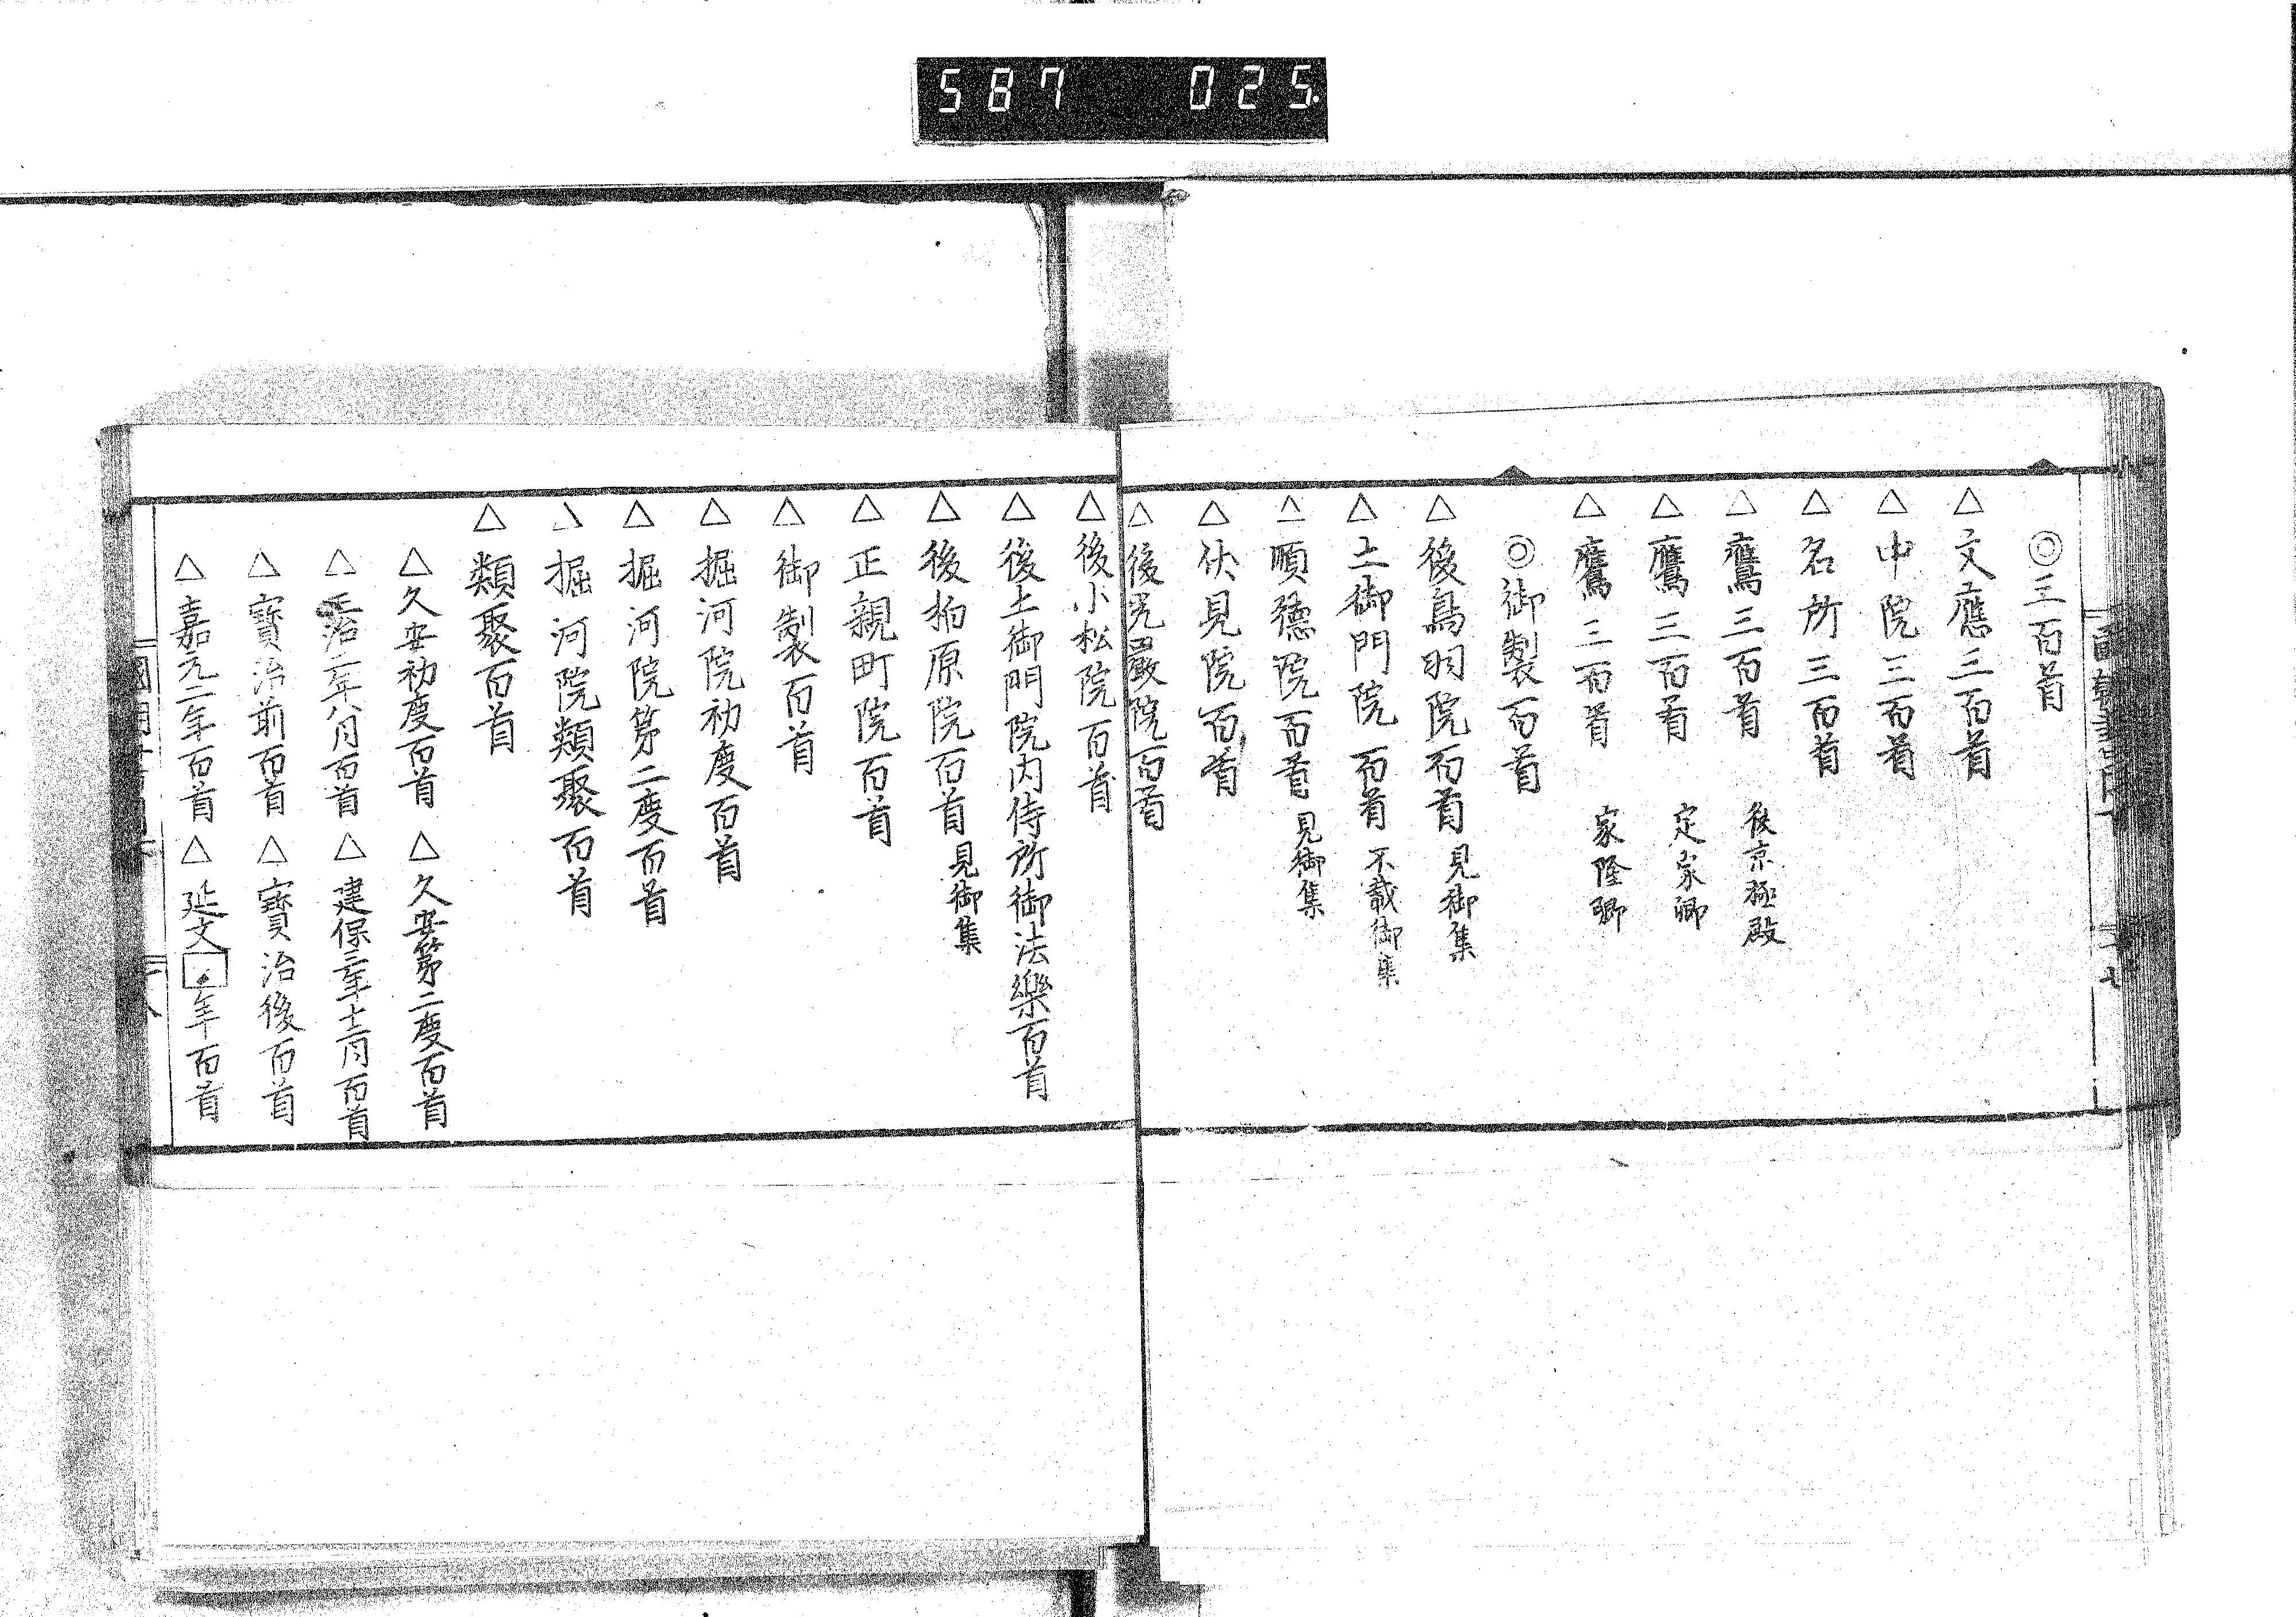 587 025
◎三百首
△文應三百首
△中院三百首
△名所三百首
△鷹三百首 後京極殿
△鷹三百首 定家卿
△鷹三百首 家隆卿
◎御製百首
△後鳥羽院百首 見御集
△土御門院百首 不載御集
△順德院百首 見御集
△伏見院百首
△後光嚴院百首
△後小松院百首
△後土御門院内侍所御法樂百首
△後柏原院百首 見御集
△正親町院百首
△御製百首
△掘河院初度百首
△掘河院第二度百首
△掘河院類聚百首
△類聚百首
△久安初度百首 △久安第二度百首
△正治二年八月百首 △建保三年十二月百首
△寶治前百首 △寶治後百首
△嘉元二年百首 △延文□年百首